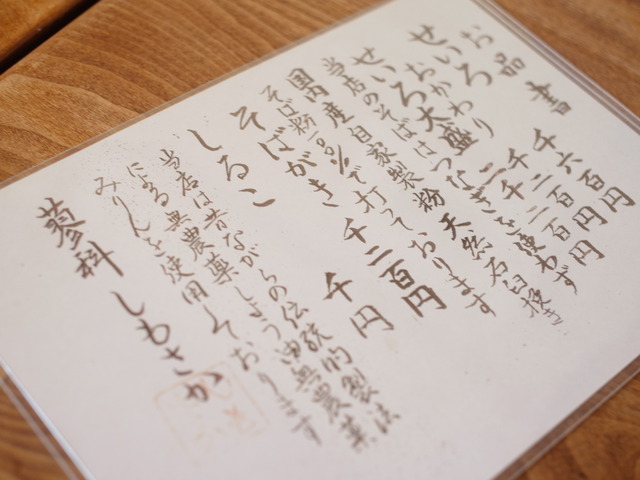 お品書
せいろ 千六百円
おかわり 千二百円
せいろ大盛 二千二百円
当店のそばはつなぎを使わず
国内産自家製粉 天然石臼挽き
そば粉100%で打っております
そばがき 千二百円
しるこ 千円
当店は昔ながらの伝統的製法
による無農薬しょう油無農薬
みりんを使用しております
蓼科 しもさか